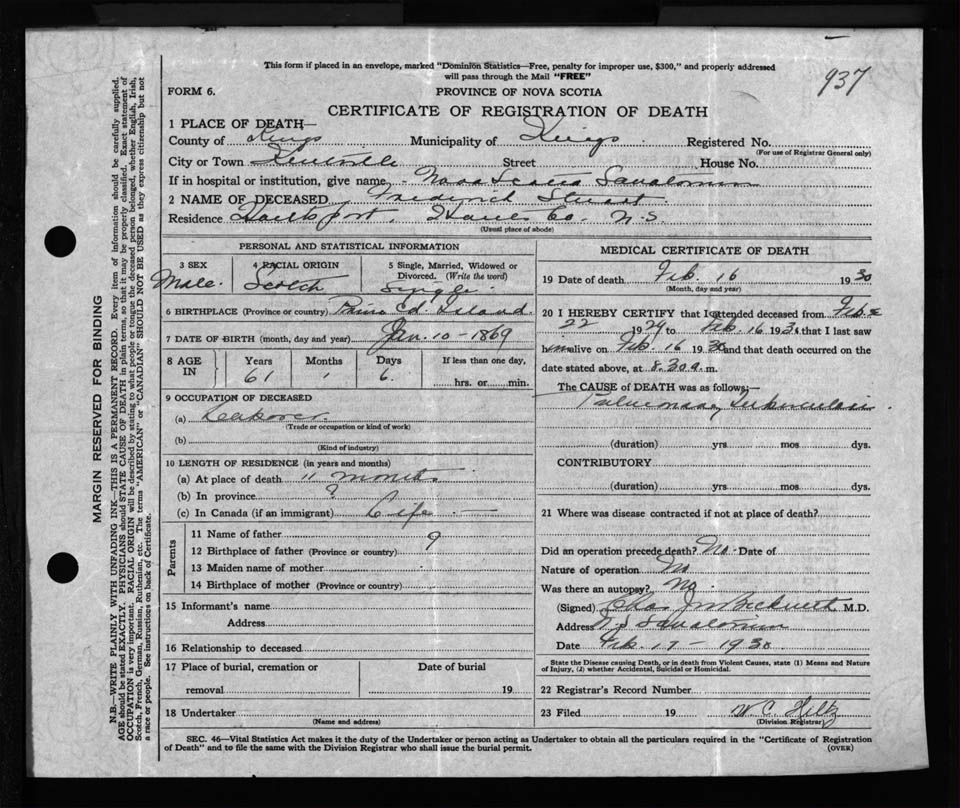 937
This form if placed in an envelope, marked "Dominion Statistics—Free, penalty for improper use, $300," and properly addressed
will pass through the Mail "FREE"
FORM 6.
PROVINCE OF NOVA SCOTIA
CERTIFICATE OF REGISTRATION OF DEATH
1 PLACE OF DEATH—
County of Kings Municipality of Kings Registered No.
(For use of Registrar General only)
City or Town Kentville Street House No.
If in hospital or institution, give name Nova Scotia Sanatorium
2 NAME OF DECEASED Frederick Stuart
Residence Hantsport, Hants Co. N.S.
(Usual place of abode)
PERSONAL AND STATISTICAL INFORMATION
3 SEX
Male
4 RACIAL ORIGIN
Scotch
5 Single, Married, Widowed or
Divorced. (Write the word)
Single
6 BIRTHPLACE (Province or country) Prince Ed. Island
7 DATE OF BIRTH (month, day and year) Jan. 10 - 1869
8 AGE
IN
Years
61
Months
1
Days
6
If less than one day,
hrs. or min.
9 OCCUPATION OF DECEASED
(a) Labourer
(Trade or occupation or kind of work)
(b)
(Kind of industry)
10 LENGTH OF RESIDENCE (in years and months)
(a) At place of death 11 months
(b) In province ?
(c) In Canada (if an immigrant) Life
Parents
11 Name of father
12 Birthplace of father (Province or country)
13 Maiden name of mother
14 Birthplace of mother (Province or country)
15 Informant's name
Address
16 Relationship to deceased
17 Place of burial, cremation or
removal
Date of burial
19
18 Undertaker
(Name and address)
MEDICAL CERTIFICATE OF DEATH
19 Date of death Feb. 16 1930
(Month, day and year)
20 I HEREBY CERTIFY that I attended deceased from Feb
22 1929 to Feb. 16 1930 that I last saw
him alive on Feb. 16 1930 and that death occurred on the
date stated above, at 8.30 a. m.
The CAUSE of DEATH was as follows:—
Pulmonary Tuberculosis
(duration) yrs mos dys.
CONTRIBUTORY
(duration) yrs mos dys.
21 Where was disease contracted if not at place of death?
Did an operation precede death? No Date of
Nature of operation No
Was there an autopsy? No
(Signed) Chas. M.D.
Address N.S. Sanatorium
Date Feb. 17 - 1930
State the Disease causing Death, or in death from Violent Causes, state (1) Means and Nature
of Injury, (2) whether Accidental, Suicidal or Homicidal.
22 Registrar's Record Number
23 Filed 19 W. C. Hiltz
(Division Registrar)
SEC. 46—Vital Statistics Act makes it the duty of the Undertaker or person acting as Undertaker to obtain all the particulars required in the "Certificate of Registration
of Death" and to file the same with the Division Registrar who shall issue the burial permit.
(OVER)
MARGIN RESERVED FOR BINDING
N.B.—WRITE PLAINLY WITH UNFADING INK—THIS IS A PERMANENT RECORD. Every item of information should be carefully supplied.
AGE should be stated EXACTLY. PHYSICIANS should STATE CAUSE OF DEATH in plain terms, so that it may be properly classified. Exact statement of
OCCUPATION is very important. RACIAL ORIGIN will be described by stating to what people or tongue the deceased person belonged, whether English, Irish,
Scotch, French, German, Russian, Ruthenian, etc. The terms "AMERICAN" or "CANADIAN" SHOULD NOT BE USED as they express citizenship but not
a race or people. See instructions on back of Certificate.